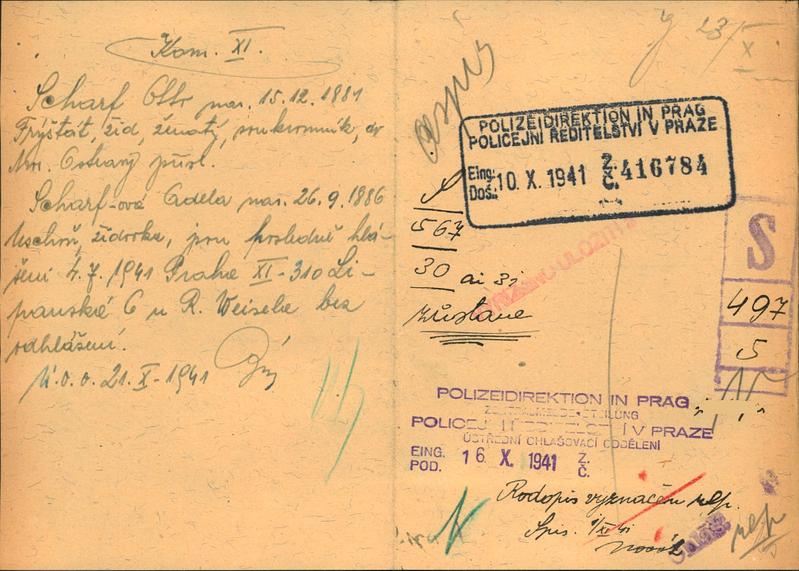 Kom. XI.
Scharf Otto nar. 15.12.1881
Frýštát, žid, ženatý, soukromník, do
Mor. Ostravy přísl.
Scharf-ová Adela nar. 26.9.1886
židovka, jsou posledně hlá-
šeni 4.7.1941 Praha XI-310 Li-
panská 6 u R. Weisele bez
odhlášení.
Ú.o.o. 21. X-1941
23/X
POLIZEIDIREKTION IN PRAG
POLICEJNÍ ŘEDITELSTVÍ V PRAZE
Eing. Z.
Doš. 10. X. 1941 Č. 416784
567
30 ai 3j
zůstane
S
497
5
POLIZEIDIREKTION IN PRAG
POLICEJNÍ ŘEDITELSTVÍ V PRAZE
ÚSTŘEDNÍ OHLAŠOVACÍ ODDĚLENÍ
EING. Z.
POD. 16. X. 1941 Č.
Rodopis vyznačen
Spis.